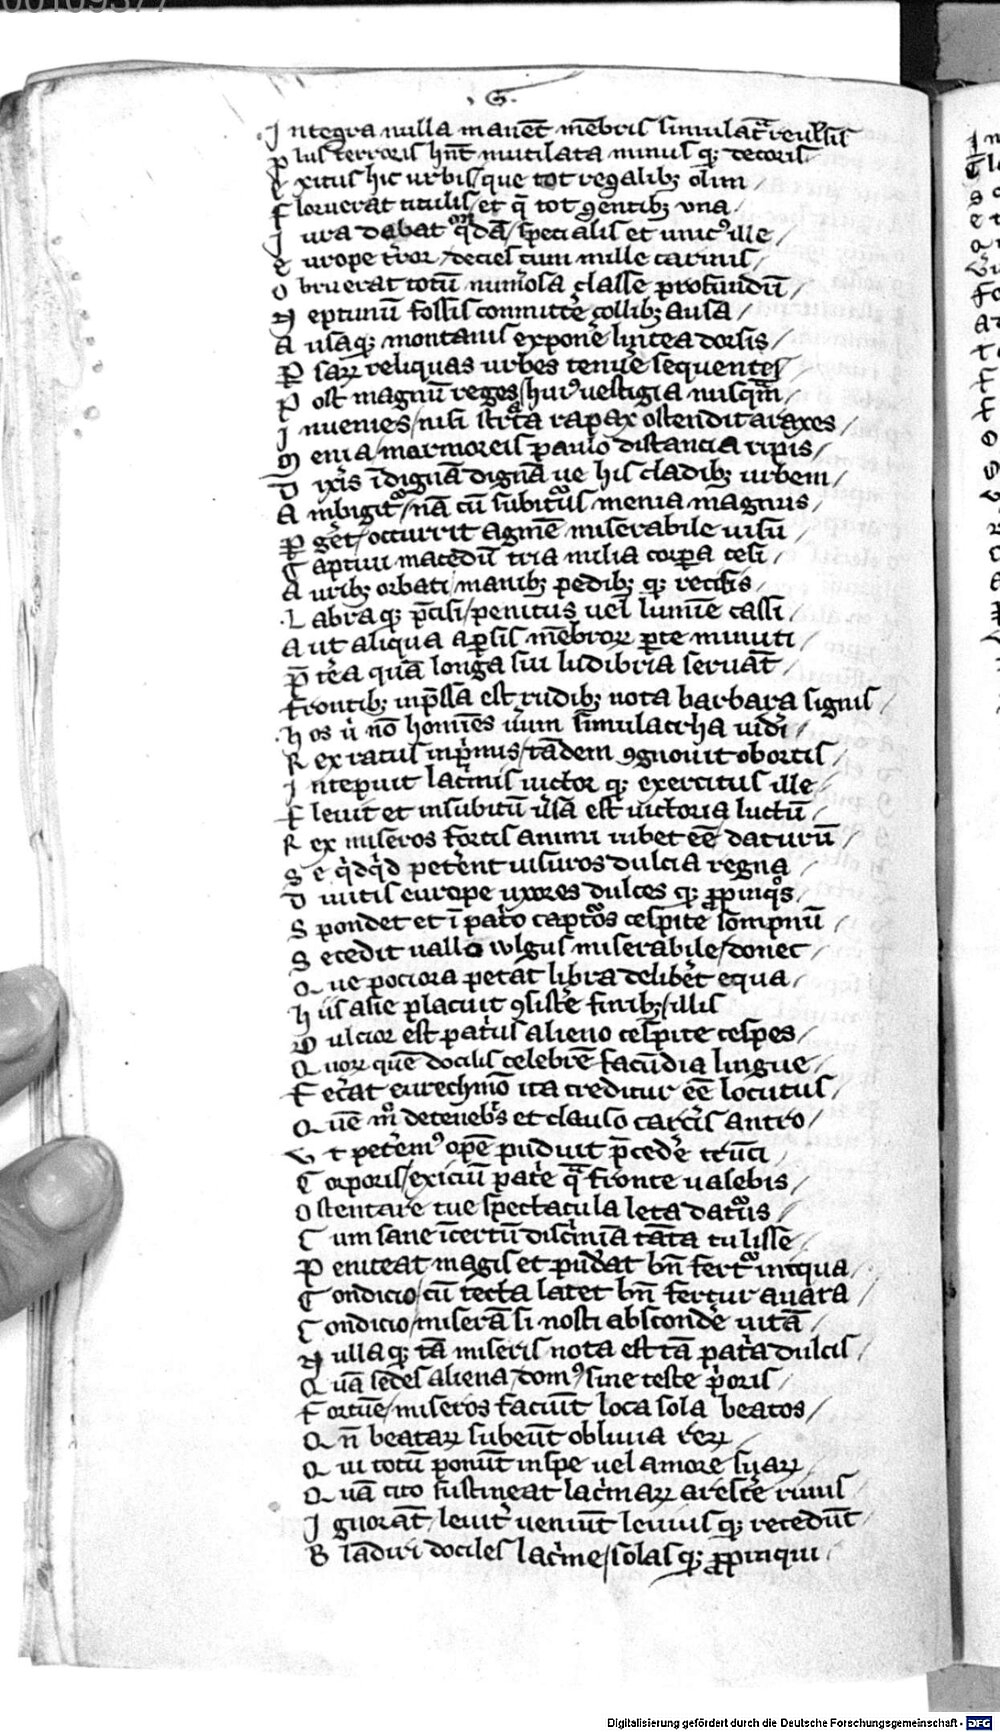 00109377
.G.
Integra nulla manet mēbris simulac̄ reuulsis
Plus terroris hn̄t mutilata minus q; decoris
Exitus hic urbis/que tot regalib; olim
Floruerat titulis/et q̄ tot ꝯentib; vna
Jura dabat qͦndā/specialis et unicꝰ ille
Europe tͥror/decies cum mille carinis/
Obruerat totū num̄osa classe profundū/
Neptunū fossis committe᷑ collib; ausa/
Ausaq; montanis expone᷑ lintea dorsis/
ꝑsaꝝ reliquas urbes tenue᷑ sequentes
Post magnū reges/huiꝰ uestigia nusqᷓm/
Inuenies/nisi st̄ata rapax ostendit araxes/
Menia/marmoreis paulo distancia ripis/
Dixͥis īdignā dignā ue his cladib; urbem/
Ambigitᷣ/nā cū subitᷣus menia magnus/
ꝑget/occurrit agmē miserabile uisu
Captiui macedū tria milia corꝑa cesi/
Aurib; orbati/manib; pedib; q; recisis/
Labraq; p̄cisi/penitus uel lumīe cassi/
Aut aliqua aꝑsis mēbroꝝ ꝑte minuti/
P̄tea quā longa sui ludibria seruāt/
Frontib; inp̄ssa est rudib; nota barbara signis/
Hos ut nō homīes uerum simulacrha uid̄i/
Rex ratus inp̄mus/tādem ꝯgnouit obortis/
Intepuit lac̄mis uictor q; exercitus ille/
Fleuit et insubitū ūsa est uictoria luctū/
Rex miseros fortis animi iubet ēē daturū/
Se qͥdqͥd petēnt uisuros dulcia regna
Diuitis europe uxores dulces q; ꝓpinqͦs/
Spondet et ī patͥo captoͦs cespite sompnū/
Secedit uallo uulgus miserabile/donec/
Que pociora petāt libra deliber̄t equa/
Hiis asie placuit ꝯsiste᷑ finib;/illis
Dulcior est patͥus alieno cespite cespes/
Quoꝝ quē docilis celebrē facūdia lingue/
Fecͥat eurechmō ita creditur ēē locutus/
Quē m̊ detenebͥs et clauso carcͥis antro/
Vt petēmꝰ opē puduit p̄cede᷑ trūci/
Corporis/exiciū pate᷑ qᷓ fronte ualebis/
Ostentare tue spectacula leta datᷣus/
Cum sane īcertū discͥmīa tāta tulisse/
Peniteat magis et pudͤat bn̄ fertͬ iniqua/
Condicio/cū tecta latet bn̄ fertur auara/
Condicio/miserā si nosti absconde᷑ uitā/
Nullaq; tā miseris nota est tā patͥa dulcis/
Quā sedes aliena/domꝰ/sine teste p̄oris/
Fortūe/miseros faciūt loca sola beatos/
Qn̄ beataꝝ subeūt obliuia reꝝ/
Qui totū ponūt inspe uel amore suaꝝ/
Quā cito sustineat lacͥmaꝝ aresce᷑ riuus/
Ignorāt/leuit᷑ ueniūt leuius q; recedūt/
Blādiri dociles lacͥme/solas q; ꝓpinqui/
Digitalisierung gefördert durch die Deutsche Forschungsgemeinschaft - DFG